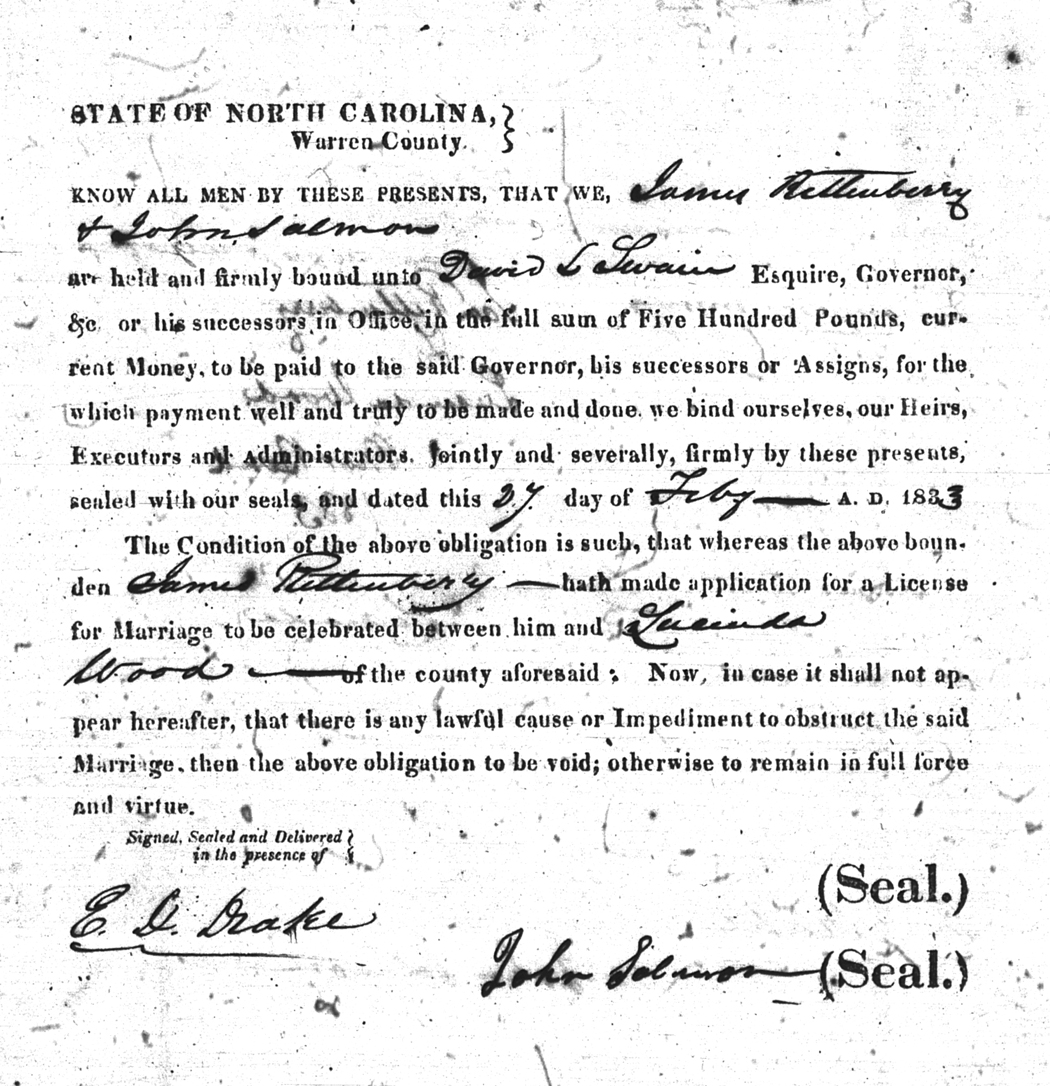 STATE OF NORTH CAROLINA,
Warren County.
KNOW ALL MEN BY THESE PRESENTS, THAT WE, James Rittenberry
& John Salmon
are held and firmly bound unto David L Swain Esquire, Governor,
&c. or his successors in Office, in the full sum of Five Hundred Pounds, cur-
rent Money, to be paid to the said Governor, his successors or Assigns, for the
which payment well and truly to be made and done, we bind ourselves, our Heirs,
Executors and Administrators, Jointly and severally, firmly by these presents,
sealed with our seals, and dated this 27 day of Feby A. D. 1833
The Condition of the above obligation is such, that whereas the above boun-
den James Rittenberry hath made application for a License
for Marriage to be celebrated between him and Lucinda
Wood of the county aforesaid; Now, in case it shall not ap-
pear hereafter, that there is any lawful cause or Impediment to obstruct the said
Marriage, then the above obligation to be void; otherwise to remain in full force
and virtue.
Signed, Sealed and Delivered
in the presence of
(Seal.)
E. D. Drake
John Salmon (Seal.)